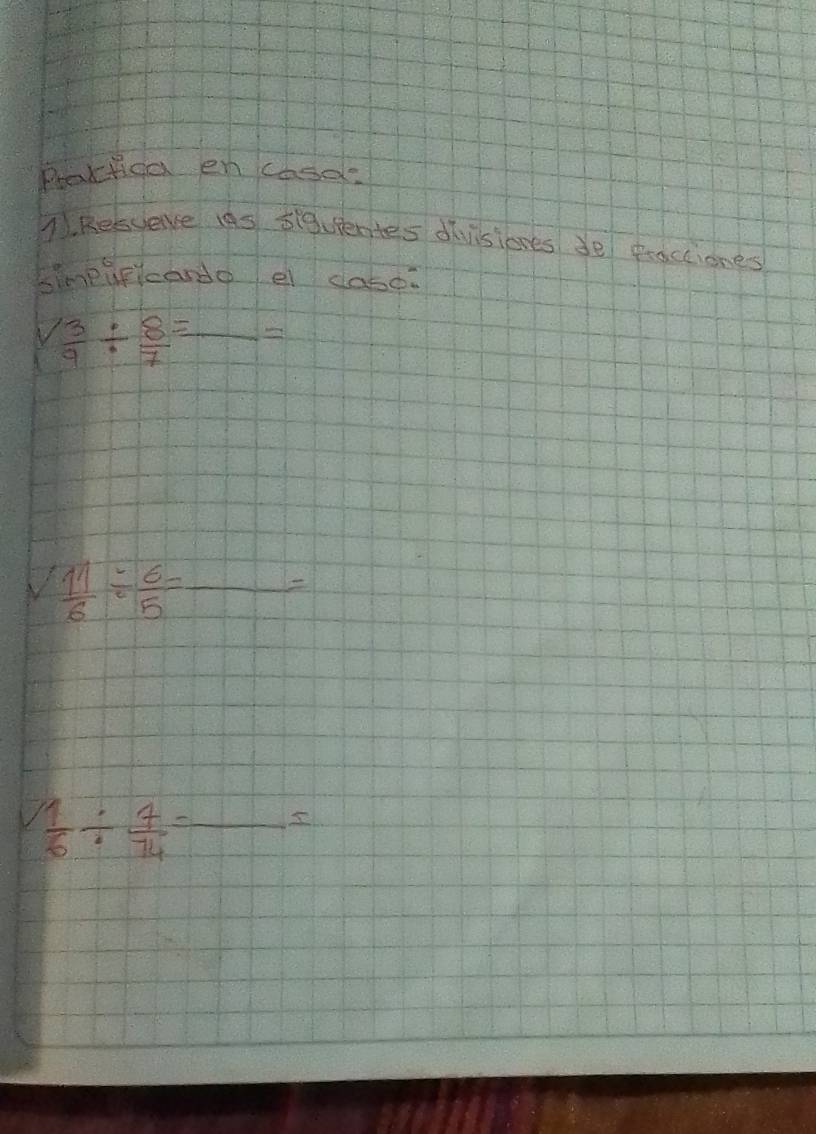 Practica en casa:
1). Resuelve las siguientes divisiones de fracciones
simplificando el caso:
√ 3/9 ÷ 8/7 = ___ =
√ 11/6 ÷ 6/5 = ___ =
√ 1/6 ÷ 7/14 = ___ =